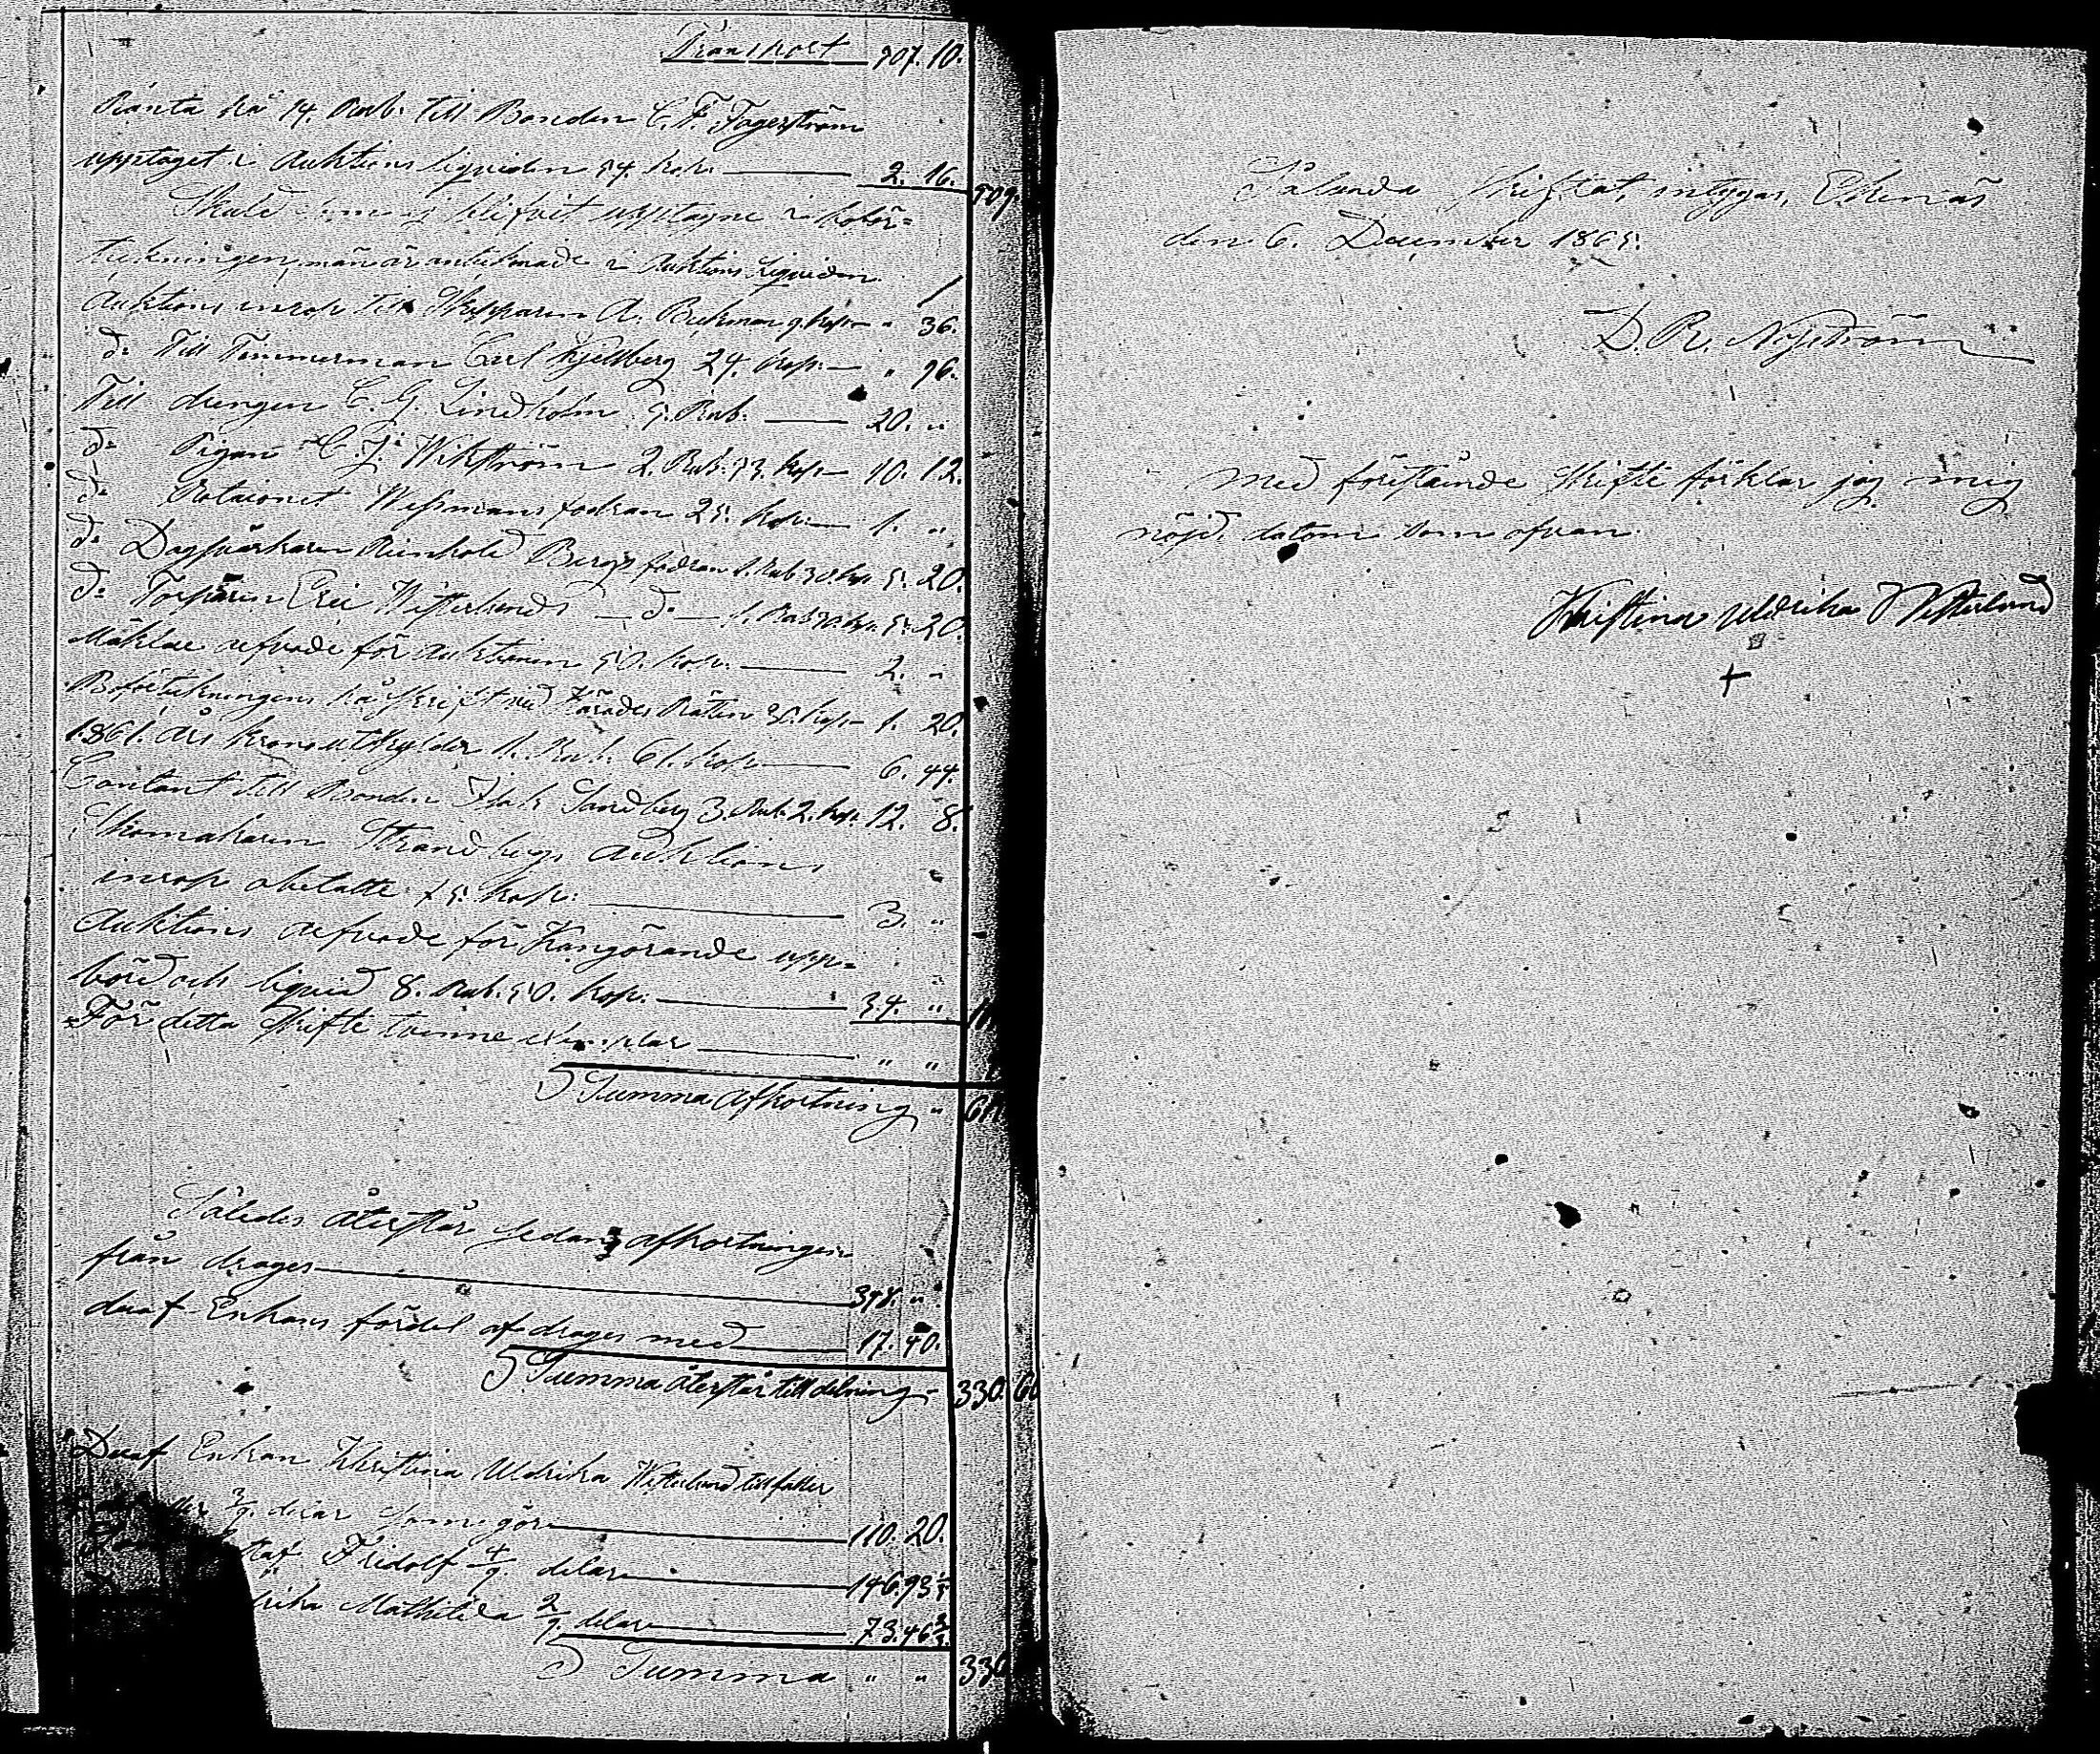 Transport 507. 10.
Ränta på 14. Rub. till Bonden C. F. Fagerström
upptaget i Auktions liquiden 54. kop. 2. 16. 509.
Skuld som ej blifvit upptagne i boför=
teckningen, män är antecknade i Auktions Liquiden
Auktions inrop till Skepparen A. Beckman 9. kop. " 36.
d:o till Timmerman Carl Kjellberg 24. kop. " 96.
Till drengen C. G. Lindholm 5. Rub. 20. "
d:o Pigan C. J. Wikström 2. Rub. 53. kop. 10. 12.
d:o Wessmans fodran 25. kop. 1. "
d:o Dagsvärkaren Reinhold Bergs fodran 1. Rub 30. kop. 5. 20.
d:o Torparen Eric Westerlunds d:o 1. Rub 30. kop. 5. 20.
Mäklare arfvode för auktionen 50. kop. 2. "
Boförteckningens påskrift vid Härads Rätten 30. kop. 1. 20.
1861. års kronoutskylder 1. Rub. 61. kop. 6. 44.
Contant till Bonden Isak Sandberg 3. Rub. 2. kop. 12. 8.
Skomakaren Strandbergs auktions
inrop obetalte 75. kop. 3. "
Auktions arfvode för Kungörande upp=
börd och liquid 8. Rub. 50. kop. 34. "
För detta skifte tvenne exemplar " "
Summa afkortning "
Således återstår sedan afkortningen
från drages 348. "
deraf Enkans fördel afdrages med 17. 40.
Summa återstår till delning 330. 60
Deraf Enkan Christina Uldrika Westerlund tillfaller
3/9. delar som gör 110. 20.
Fridolf 4/9. delar 146. 93 1/3
Mathilda 2/9. delar 73. 46 2/3
Summa " " 330
Sålunda skiftat, intygar, Ekenäs
den 6. December 1865.
D. R. Nyström
Med förestående skifte förklar jag mig
nöjd, datum som ofvan
Kristina Uldrika Westerlund
+